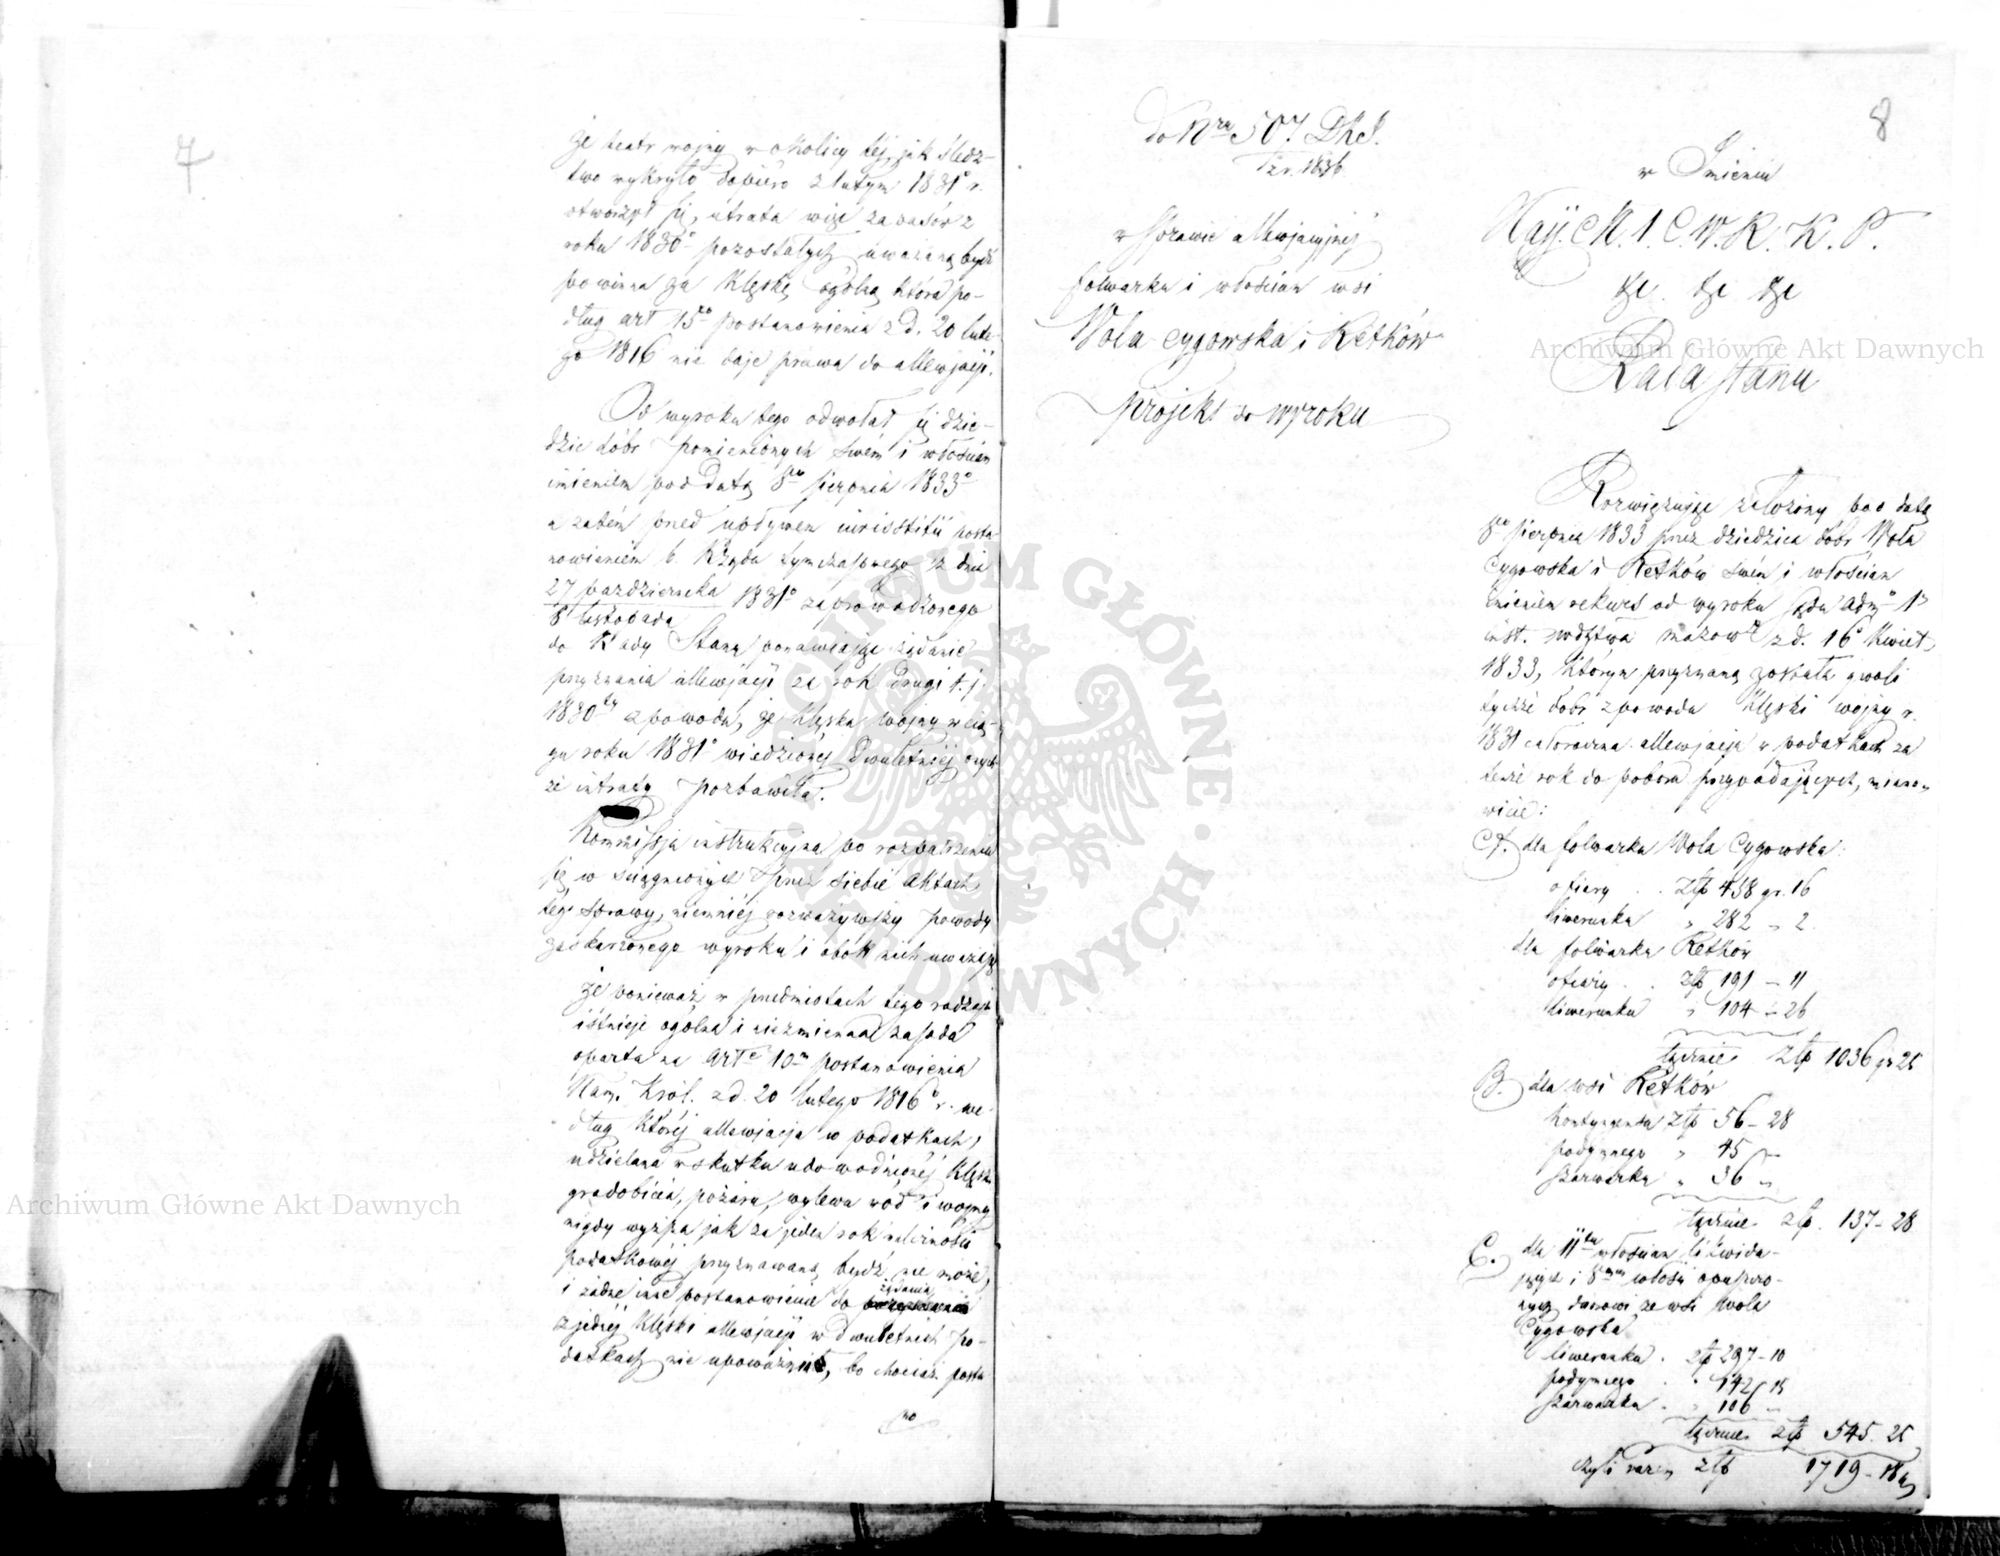 7
że teatr wojny w okolicy tej, jak śledz-
two wykryło dopiero z lutym 1831o r.
otworzył się, utrata więc zapasów z
roku 1830o pozostałych uważaną być
powinna za klęskę ogólną która po-
dług art 15go postanowienia z d. 20 lute-
go 1816 nie daje prawa do allewjacji.
Od wyroku tego odwołał się dzie-
dzic dóbr pomienionych swem i włościan
imieniem pod datą 8go sierpnia 1833o
a zatem przed upływem jurisstitii posta-
nowieniem b. Rządu Tymczasowego z dnia
27 października
8 listopada
1831o zaprowadzonego
do Rady Stanu ponawiając żądanie
przyznania allewjacji za rok drugi t. j.
1830ty z powodu, że klęska wojny w cią-
gu roku 1831o wiedzionej dwuletniej onych-
że intraty pozbawiła.
Kommissja instrukcyjna po rozpatrzeniu
się w ściągnionych przez siebie aktach
tej sprawy, niemniej rozważywszy powody
zaskarżonego wyroku i obok nich uważając
że ponieważ w przedmiotach tego rodzaju
istnieje ogólna i niezmienna zasada
oparta na arte 10m postanowienia
Nam. Król. z d. 20 lutego 1816o r. we-
dług której allewjacja w podatkach,
udzielana w skutku udowodnionej klęski
gradobicia, pożaru, wylewu wód i wojny
nigdy wyższa jak za jeden rok należności
podatkowej przyznawaną być nie może,
i żadne inne postanowienie do żądania
z jednej klęski allewjacji w dwuletnich po-
datkach nie upoważnia, bo chociaż posta-
no
8
do Nru 507. D.k.S.
z r. 1836
w sprawie allewjacyjnej
folwarku i włościan wsi
Wola Cygowska i Retków
projekt do wyroku
w Imieniu
Nayj. M. 1. C. W. R. K. P.
&c. &c &c
Rada Stanu
Rozwiązując założony pod datą
8go sierpnia 1833 przez dziedzica dóbr Wola
Cygowska i Retków swem i włościan
imieniem rekurs od wyroku Sądu Admgo 1ej
inst. wdztwa mazowgo z d. 16o kwiet.
1833, którym przyznaną została gwoli
tychże dóbr z powodu klęski wojny r.
1831 całoroczna allewjacja w podatkach za
tenże rok do poboru przypadających, miano-
wicie:
A. dla folwarku Wola Cygowska:
ofiary . . złp 458 gr. 16
liwerunku " 282 " 2
dla folwarku Retków
ofiary . . złp 191 – 11
liwerunku " 104 – 26
łącznie złp 1036 gr 25
B. dla wsi Retków
kontyngensu złp 56 – 28
podymnego " 45 "
szarwarku " 36 "
łącznie złp. 137 – 28
C. dla 11tu włościan likwidu-
jących i 8miu włości opuszczo-
nych dworowi ze wsi Wola
Cygowska
liwerunku . złp 297 – 10
podymnego . " 142 " 15
szarwarku . " 106 "
łącznie złp 545. 25
czyli razem złp 1719 – 18 gr